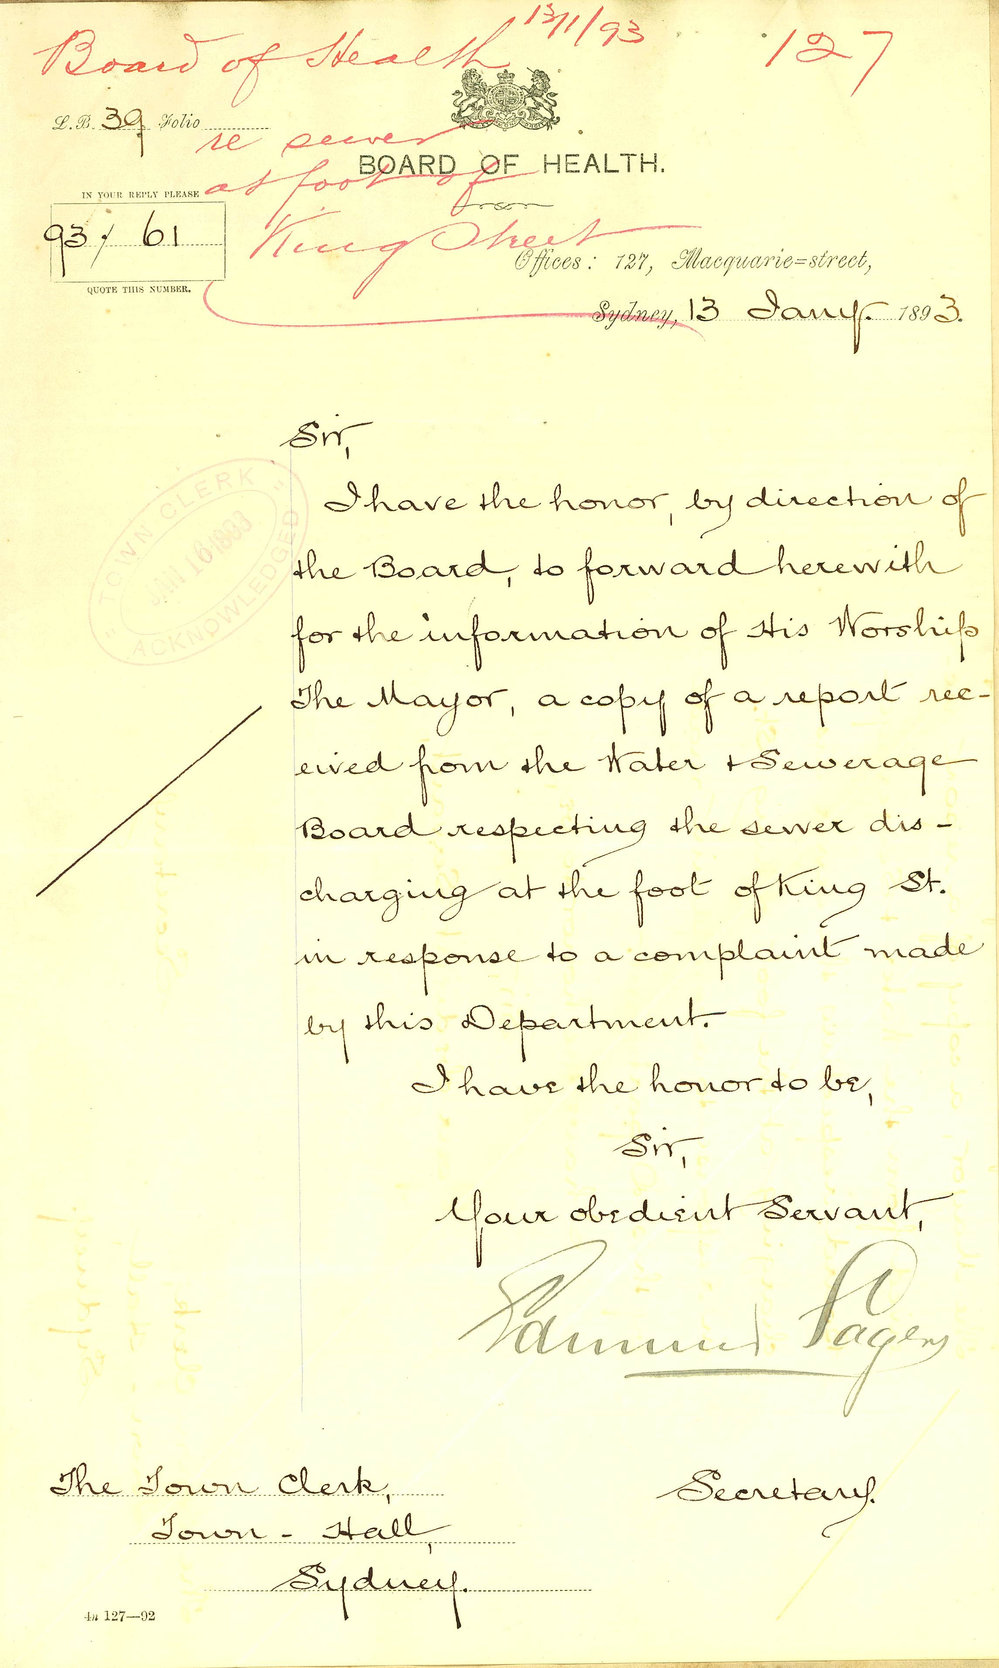 Board of Health 13/1/93
127
L.B. 39 Folio
re sewer
BOARD OF HEALTH.
at foot of
IN YOUR REPLY PLEASE
93/61
QUOTE THIS NUMBER.
King Street
Offices: 127, Macquarie=street,
Sydney, 13 Jany. 1893.
Sir,
I have the honor, by direction of
the Board, to forward herewith
for the information of His Worship
The Mayor, a copy of a report rec-
eived from the Water & Sewerage
Board respecting the sewer dis-
charging at the foot of King St.
in response to a complaint made
by this Department.
I have the honor to be,
Sir,
Your obedient Servant,
Edmund Sager
Secretary.
"TOWN CLERK"
JAN 16 1893
ACKNOWLEDGED
The Town Clerk,
Town-Hall,
Sydney.
4n 127—92